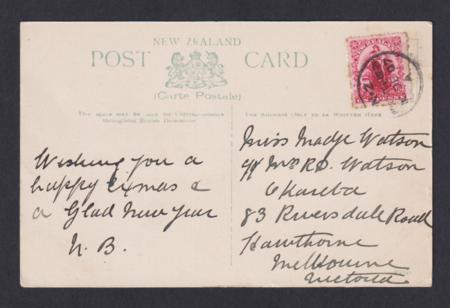 NEW ZEALAND
POST CARD
(Carte Postale)
This space may be used for Correspondence
throughout British Dominions
The Address Only to be Written Here
Wishing you a
happy Exmas &
a Glad New Year
N. B.
Miss Madge Watson
Watson
83 Riversdale Road
Hawthorne
Melbourne
Victoria